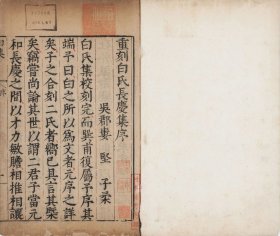 重刻白氏長慶集序
吳郡婁堅子柔
白氏集校刻完而巽甫復屬予序其
端予曰白之所以爲文者元序之詳
矣子之合刻二氏者嚮已具言其槩
矣竊嘗尚論其世以謂二君子當元
和長慶之間以才力敏贍相推相讓